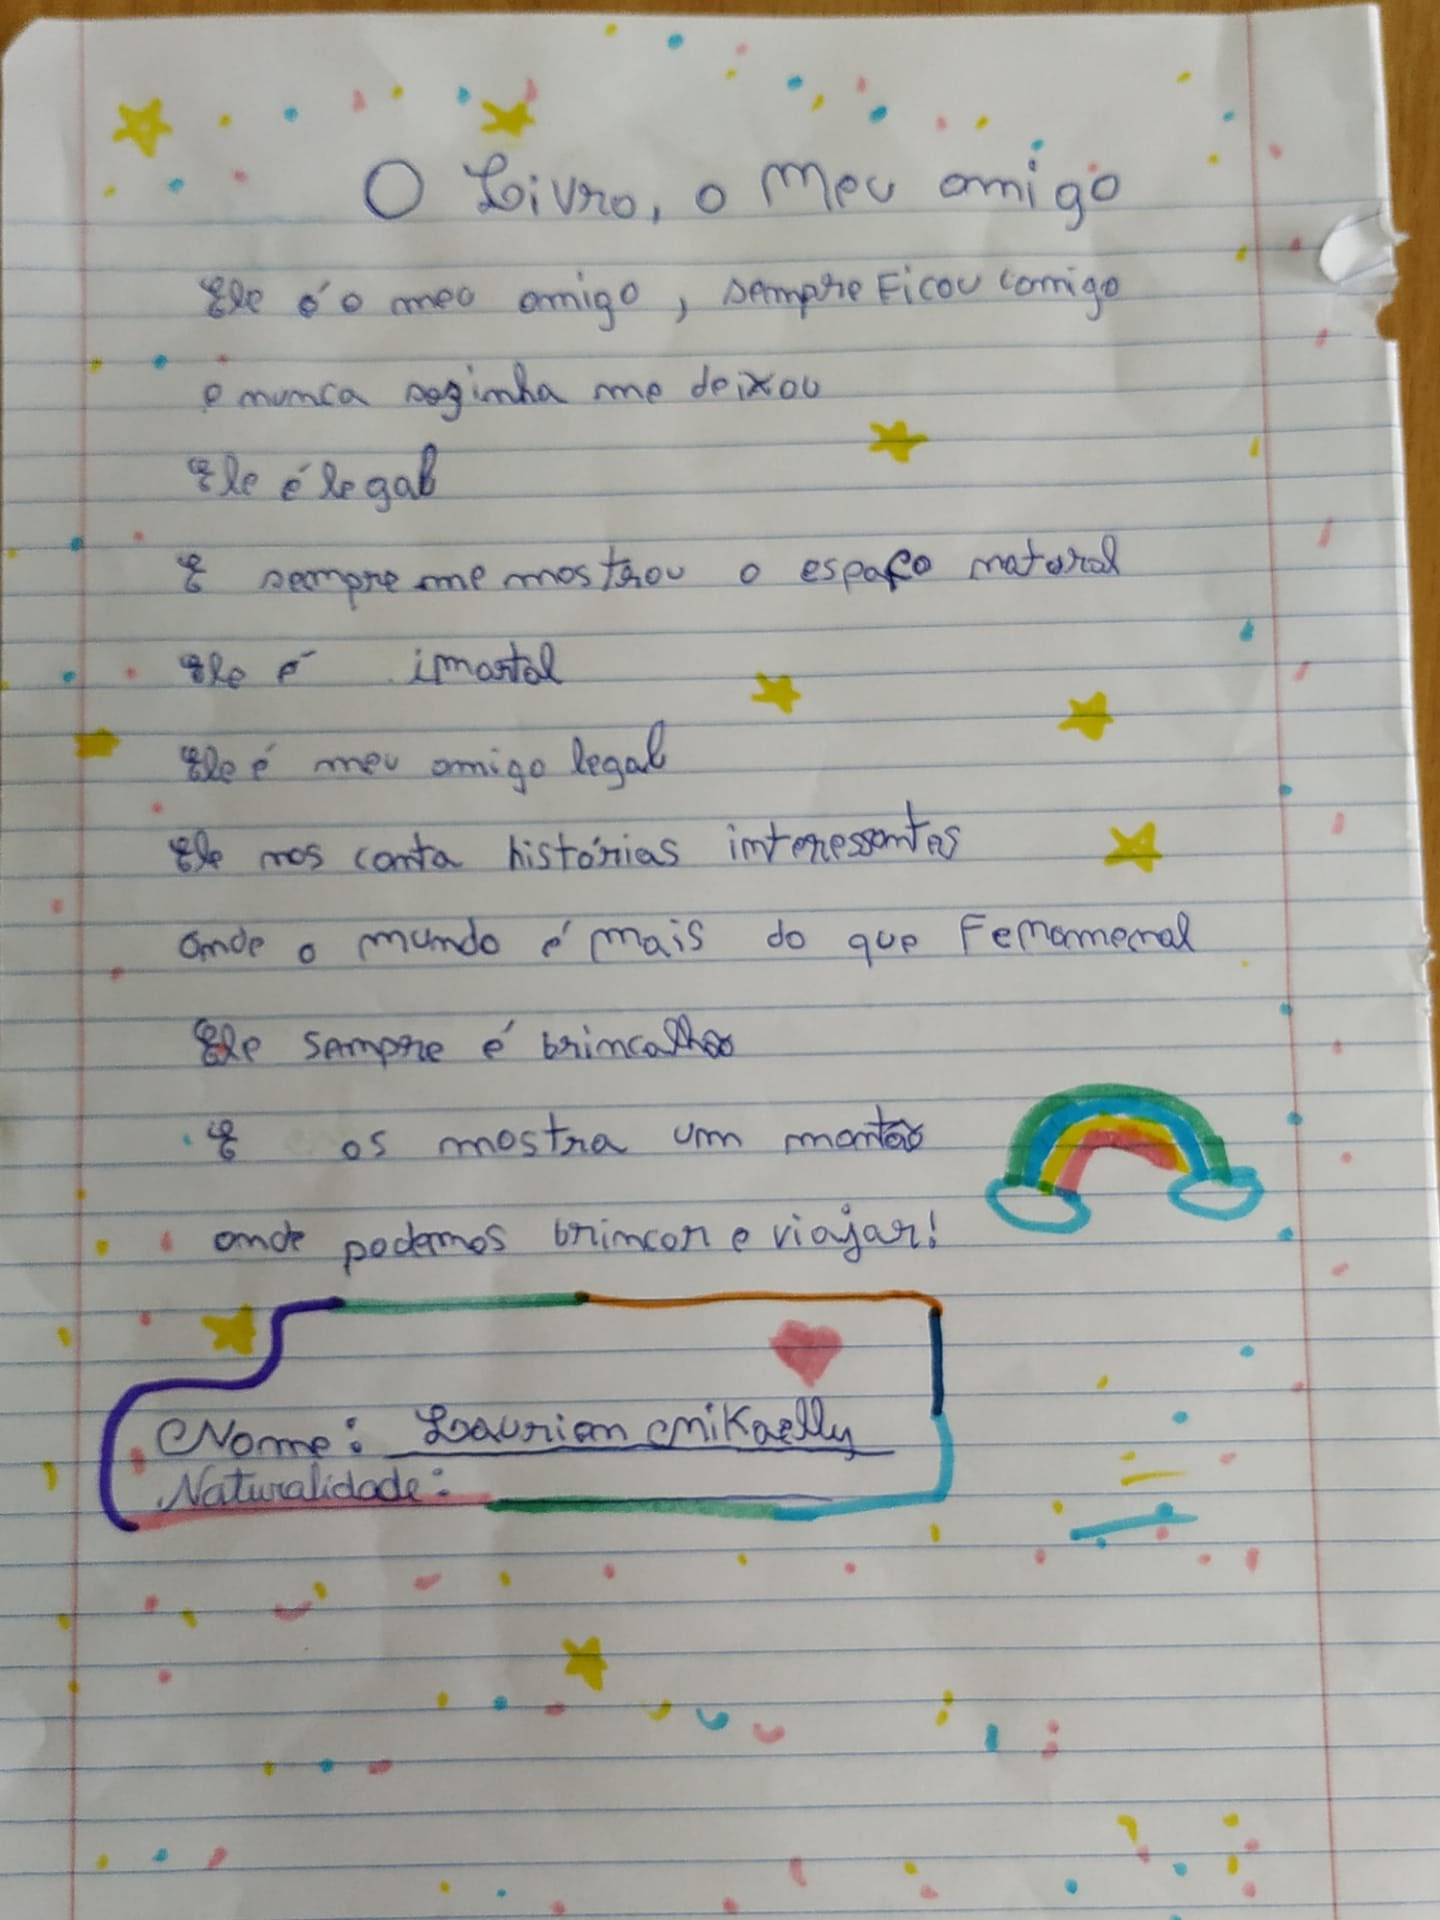 O Livro, o Meu amigo
Ele é o meu amigo, sempre Ficou comigo
e nunca sozinha me deixou
Ele é legal
E sempre me mostrou o espaço natural
Ele é imortal
Ele é meu amigo legal
Ele nos conta histórias interessantes
onde o mundo é mais do que Fenomenal
Ele sempre é brincalhão
E os mostra um montão
onde podemos brincar e viajar!
Nome: Laurien Mikaelly
Naturalidade: